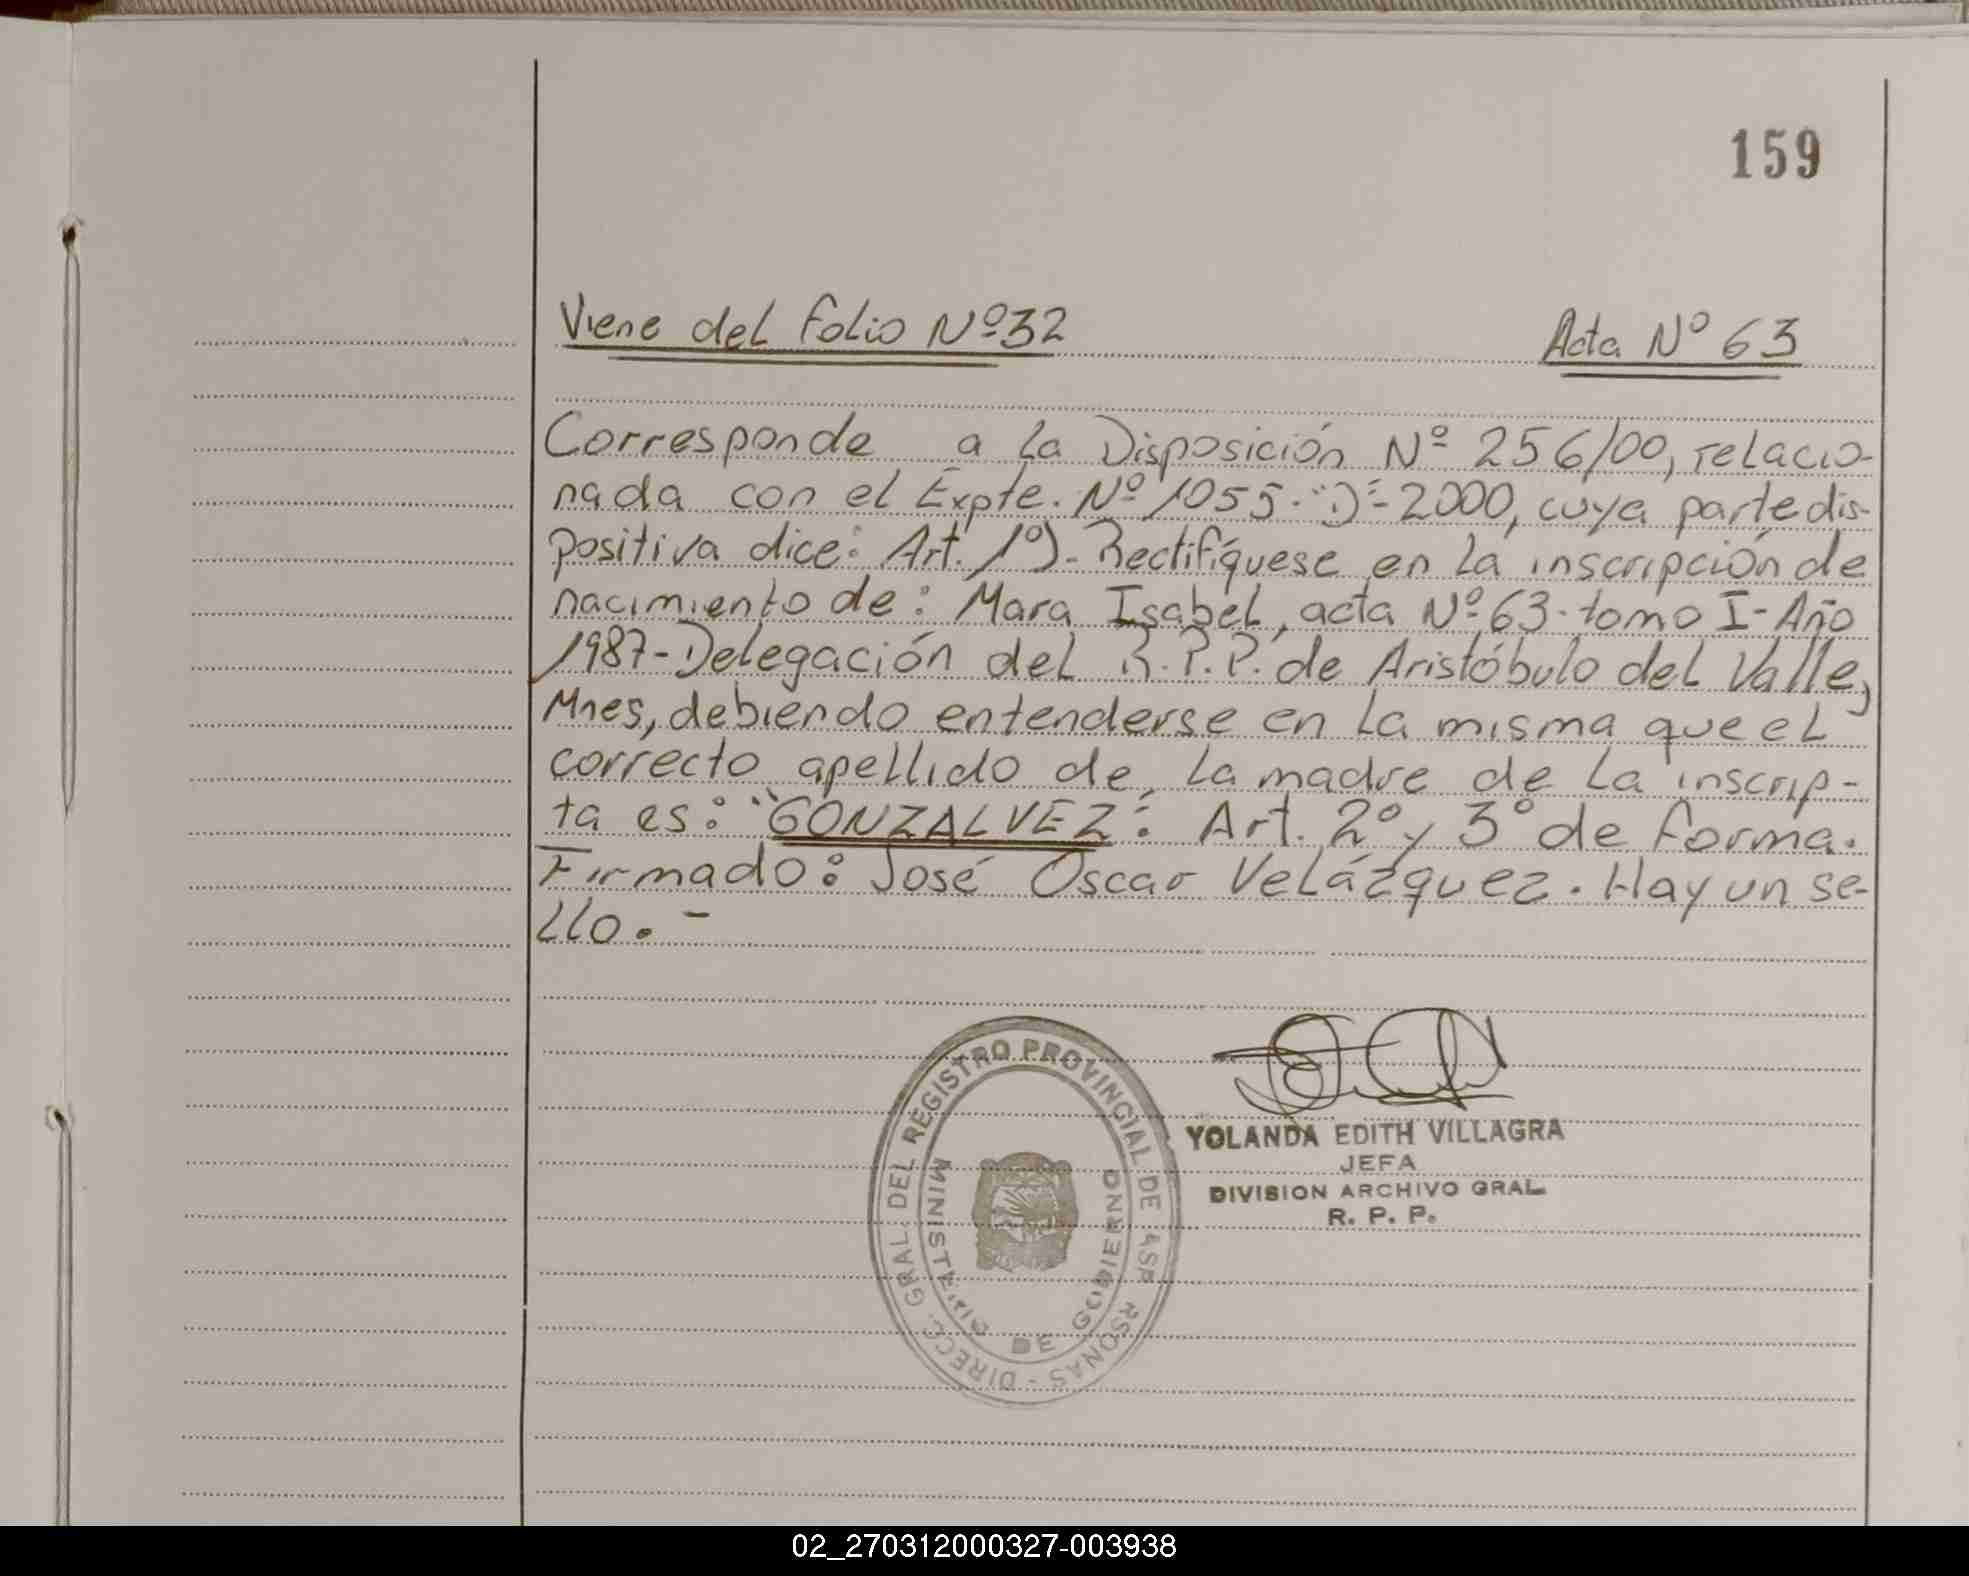 159
Viene del folio Nº 32
Acta Nº 63
Corresponde a la Disposición Nº 256/00, relacio-
nada con el Expte. Nº 1055-"D"-2000, cuya parte dis-
positiva dice: Art. 1º)- Rectifíquese en la inscripción de
nacimiento de: Mara Isabel, acta Nº 63- tomo I- Año
1987- Delegación del R.P.P. de Aristóbulo del Valle,
Mnes, debiendo entenderse en la misma que el
correcto apellido de la madre de la inscrip-
ta es: "GONZALVEZ". Art. 2º y 3º de forma.
Firmado: José Oscar Velázquez. Hay un se-
llo.-
DIRECC. GRAL. DEL REGISTRO PROVINCIAL DE LAS PERSONAS -
MINISTERIO DE GOBIERNO
YOLANDA EDITH VILLAGRA
JEFA
DIVISION ARCHIVO GRAL
R. P. P.
02_270312000327-003938